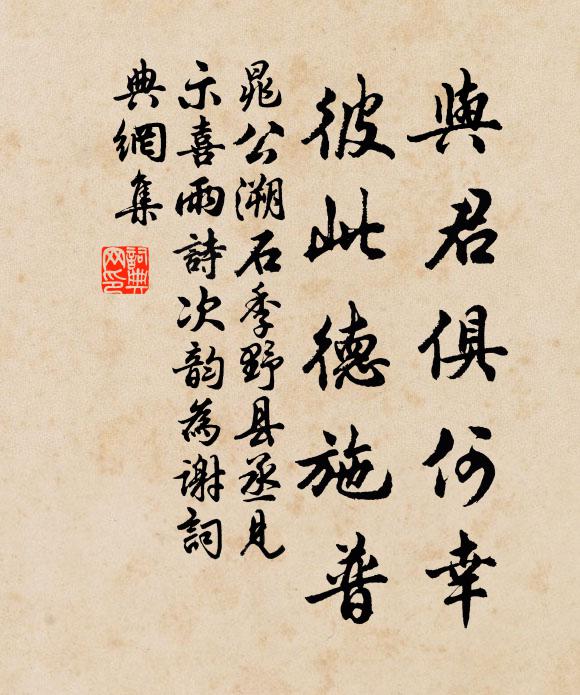 與君俱何幸
彼此德施普
晁公溯石季野县丞見
示喜雨詩次韵為謝詞
典網集
詞典
网印